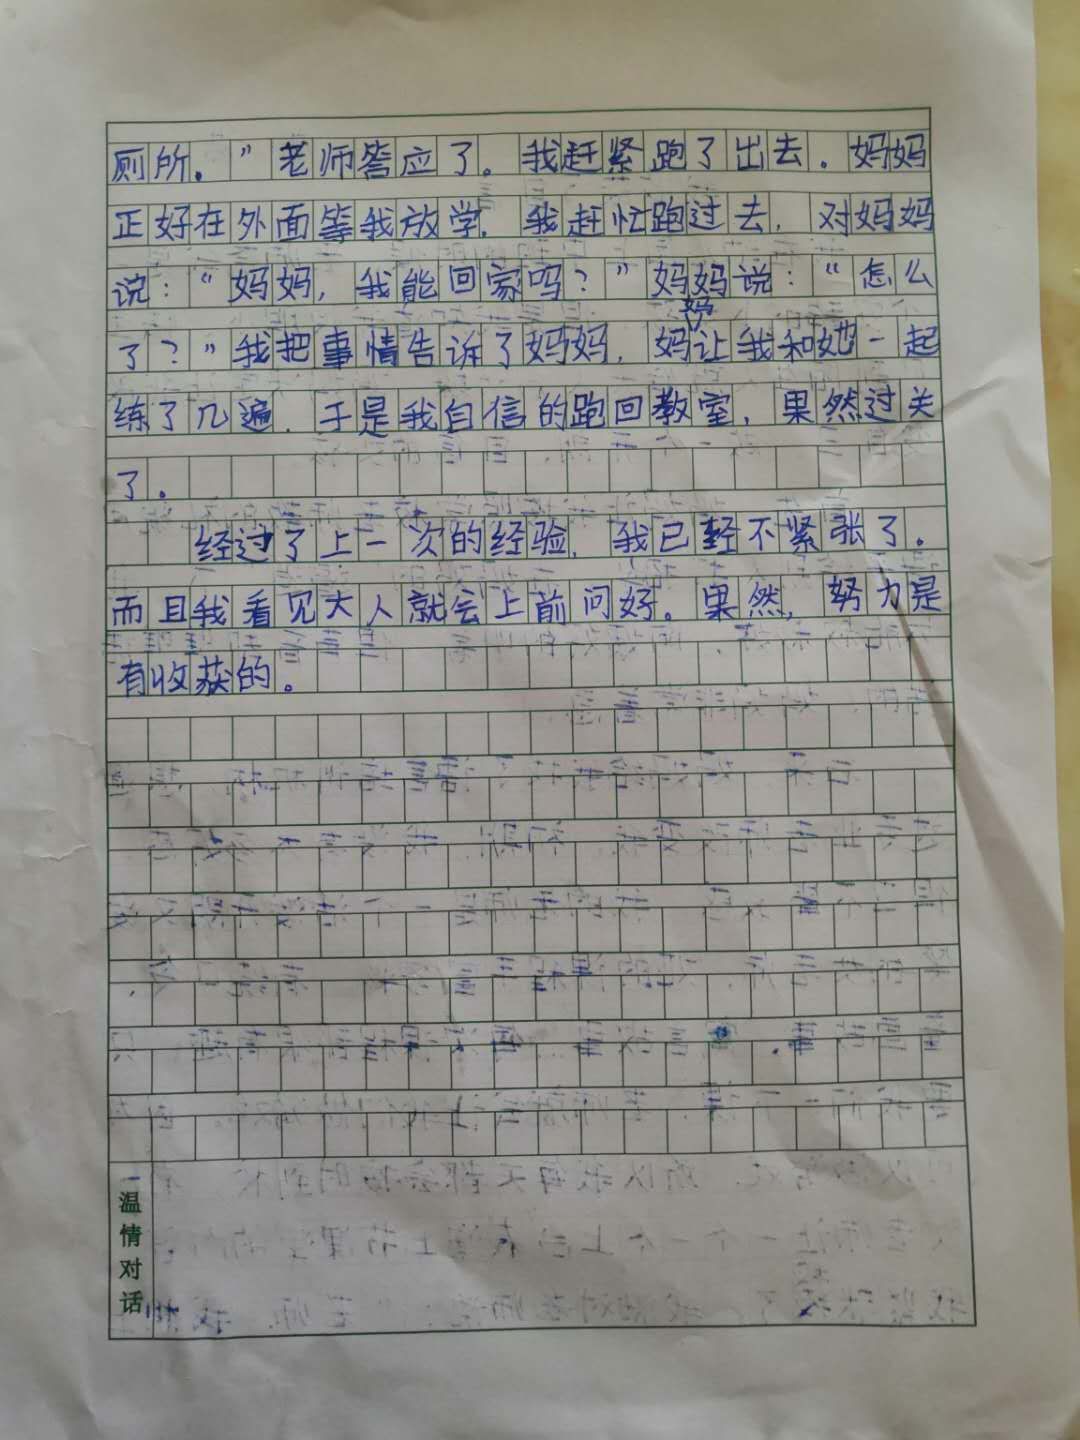 厕所。”老师答应了。我赶紧跑了出去。妈妈
正好在外面等我放学，我赶忙跑过去，对妈妈
说：“妈妈，我能回家吗？”妈妈说：“怎么
了？”我把事情告诉了妈妈，妈妈让我和她一起
练了几遍，于是我自信的跑回教室，果然过关
了。
经过了上一次的经验，我已轻不紧张了。
而且我看见大人就会上前问好。果然，努力是
有收获的。
温情对话